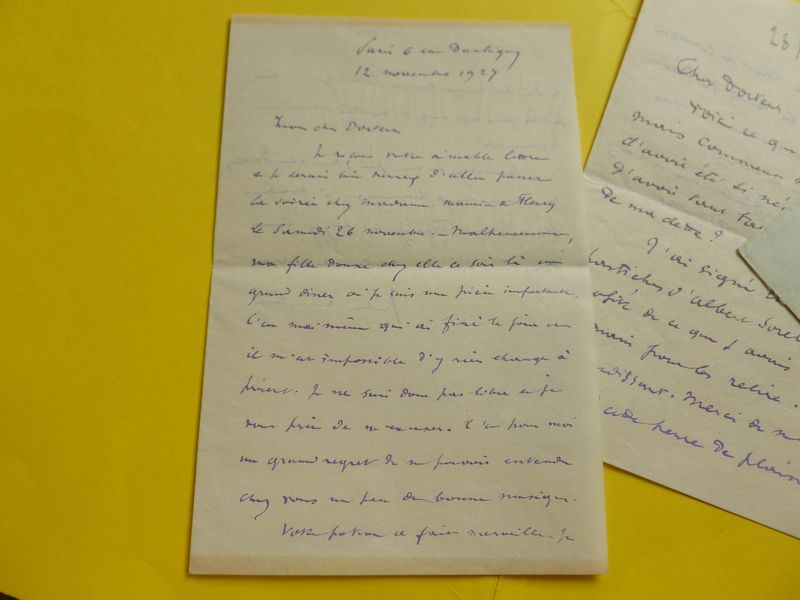 Paris 6 rue Dardigny
12 novembre 1927
Mon cher Docteur
Je reçois votre aimable lettre
et je serais bien heureux d'aller passer
la soirée chez madame Maurice de Fleury
le Samedi 26 novembre. Malheureusement,
ma fille donne chez elle ce soir là un
grand diner où je suis une pièce importante.
C'est moi même qui ai fixé le jour et
il m'est impossible d'y rien changer à
présent. Je ne suis donc pas libre et je
vous prie de m'excuser. C'est pour moi
un grand regret de ne pouvoir entendre
chez vous un peu de bonne musique.
Votre potion a fait merveille. Je
23/
Cher Docteur
Voici ce qu
mais comment
d'avoir été si né
J'avais tant
de ma dette?
J'ai signé
pastiches d'Albert Sorel
profité de ce que j'avais
main pour les relire.
Merci de m
cette heure de plaisi